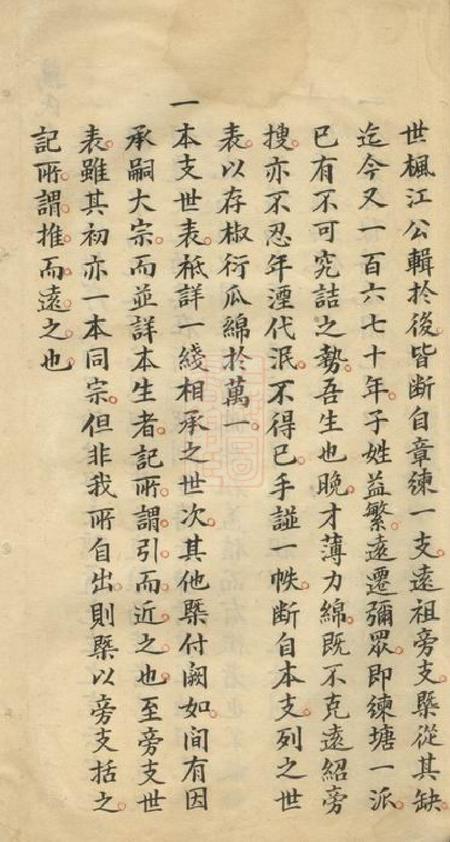 世楓江公輯於後皆断自章練一支遠祖旁支槩從其缺
迄今又一百六七十年子姓益繁遠遷彌眾即練塘一派
已有不可究詰之勢吾生也晚才薄力綿既不克遠紹旁
搜亦不忍年湮代泯不得已手謹一帙断自本支列之世
表以存椒衍瓜綿於萬一
一
本支世表祗詳一綫相承之世次其他槩付闕如間有因
承嗣大宗而並詳本生者記所謂引而近之也至旁支世
表雖其初亦一本同宗但非我所自出則槩以旁支括之
記所謂推而遠之也